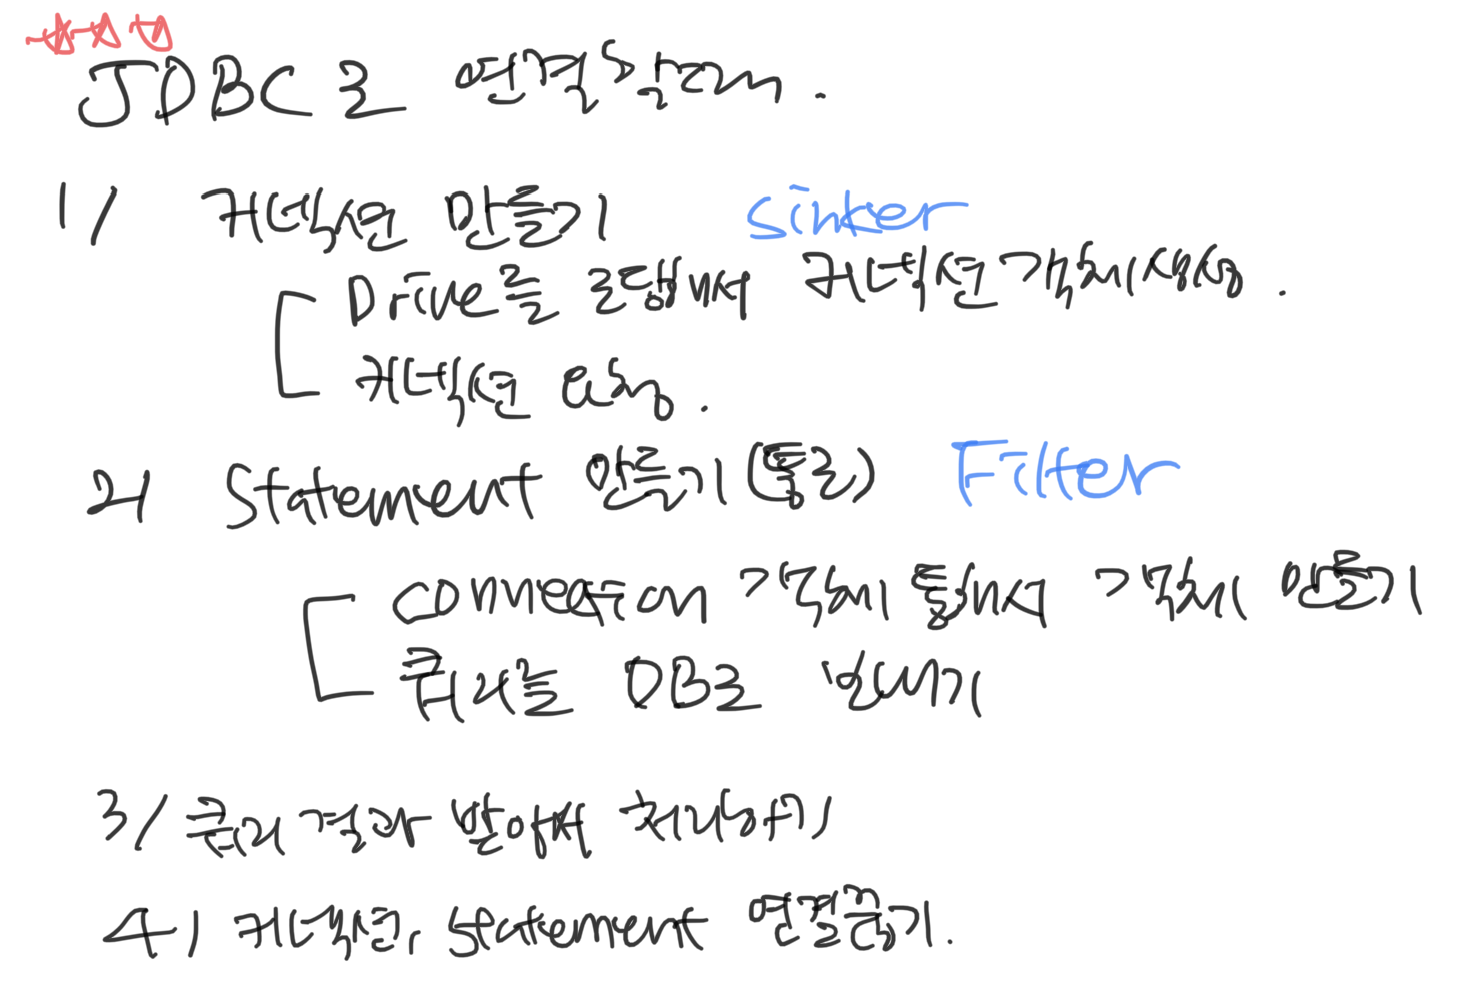 JDBC로 연결할때.
1/ 커넥션 만들기 sinker
Drive를 로딩해서 커넥션객체생성.
커넥션 요청.
2/ Statement 만들기(통로) Filter
connection 객체 통해서 객체 만들기
쿼리를 DB로 보내기
3/ 쿼리결과 받아서 처리하기
4/ 커넥션, statement 연결끊기.